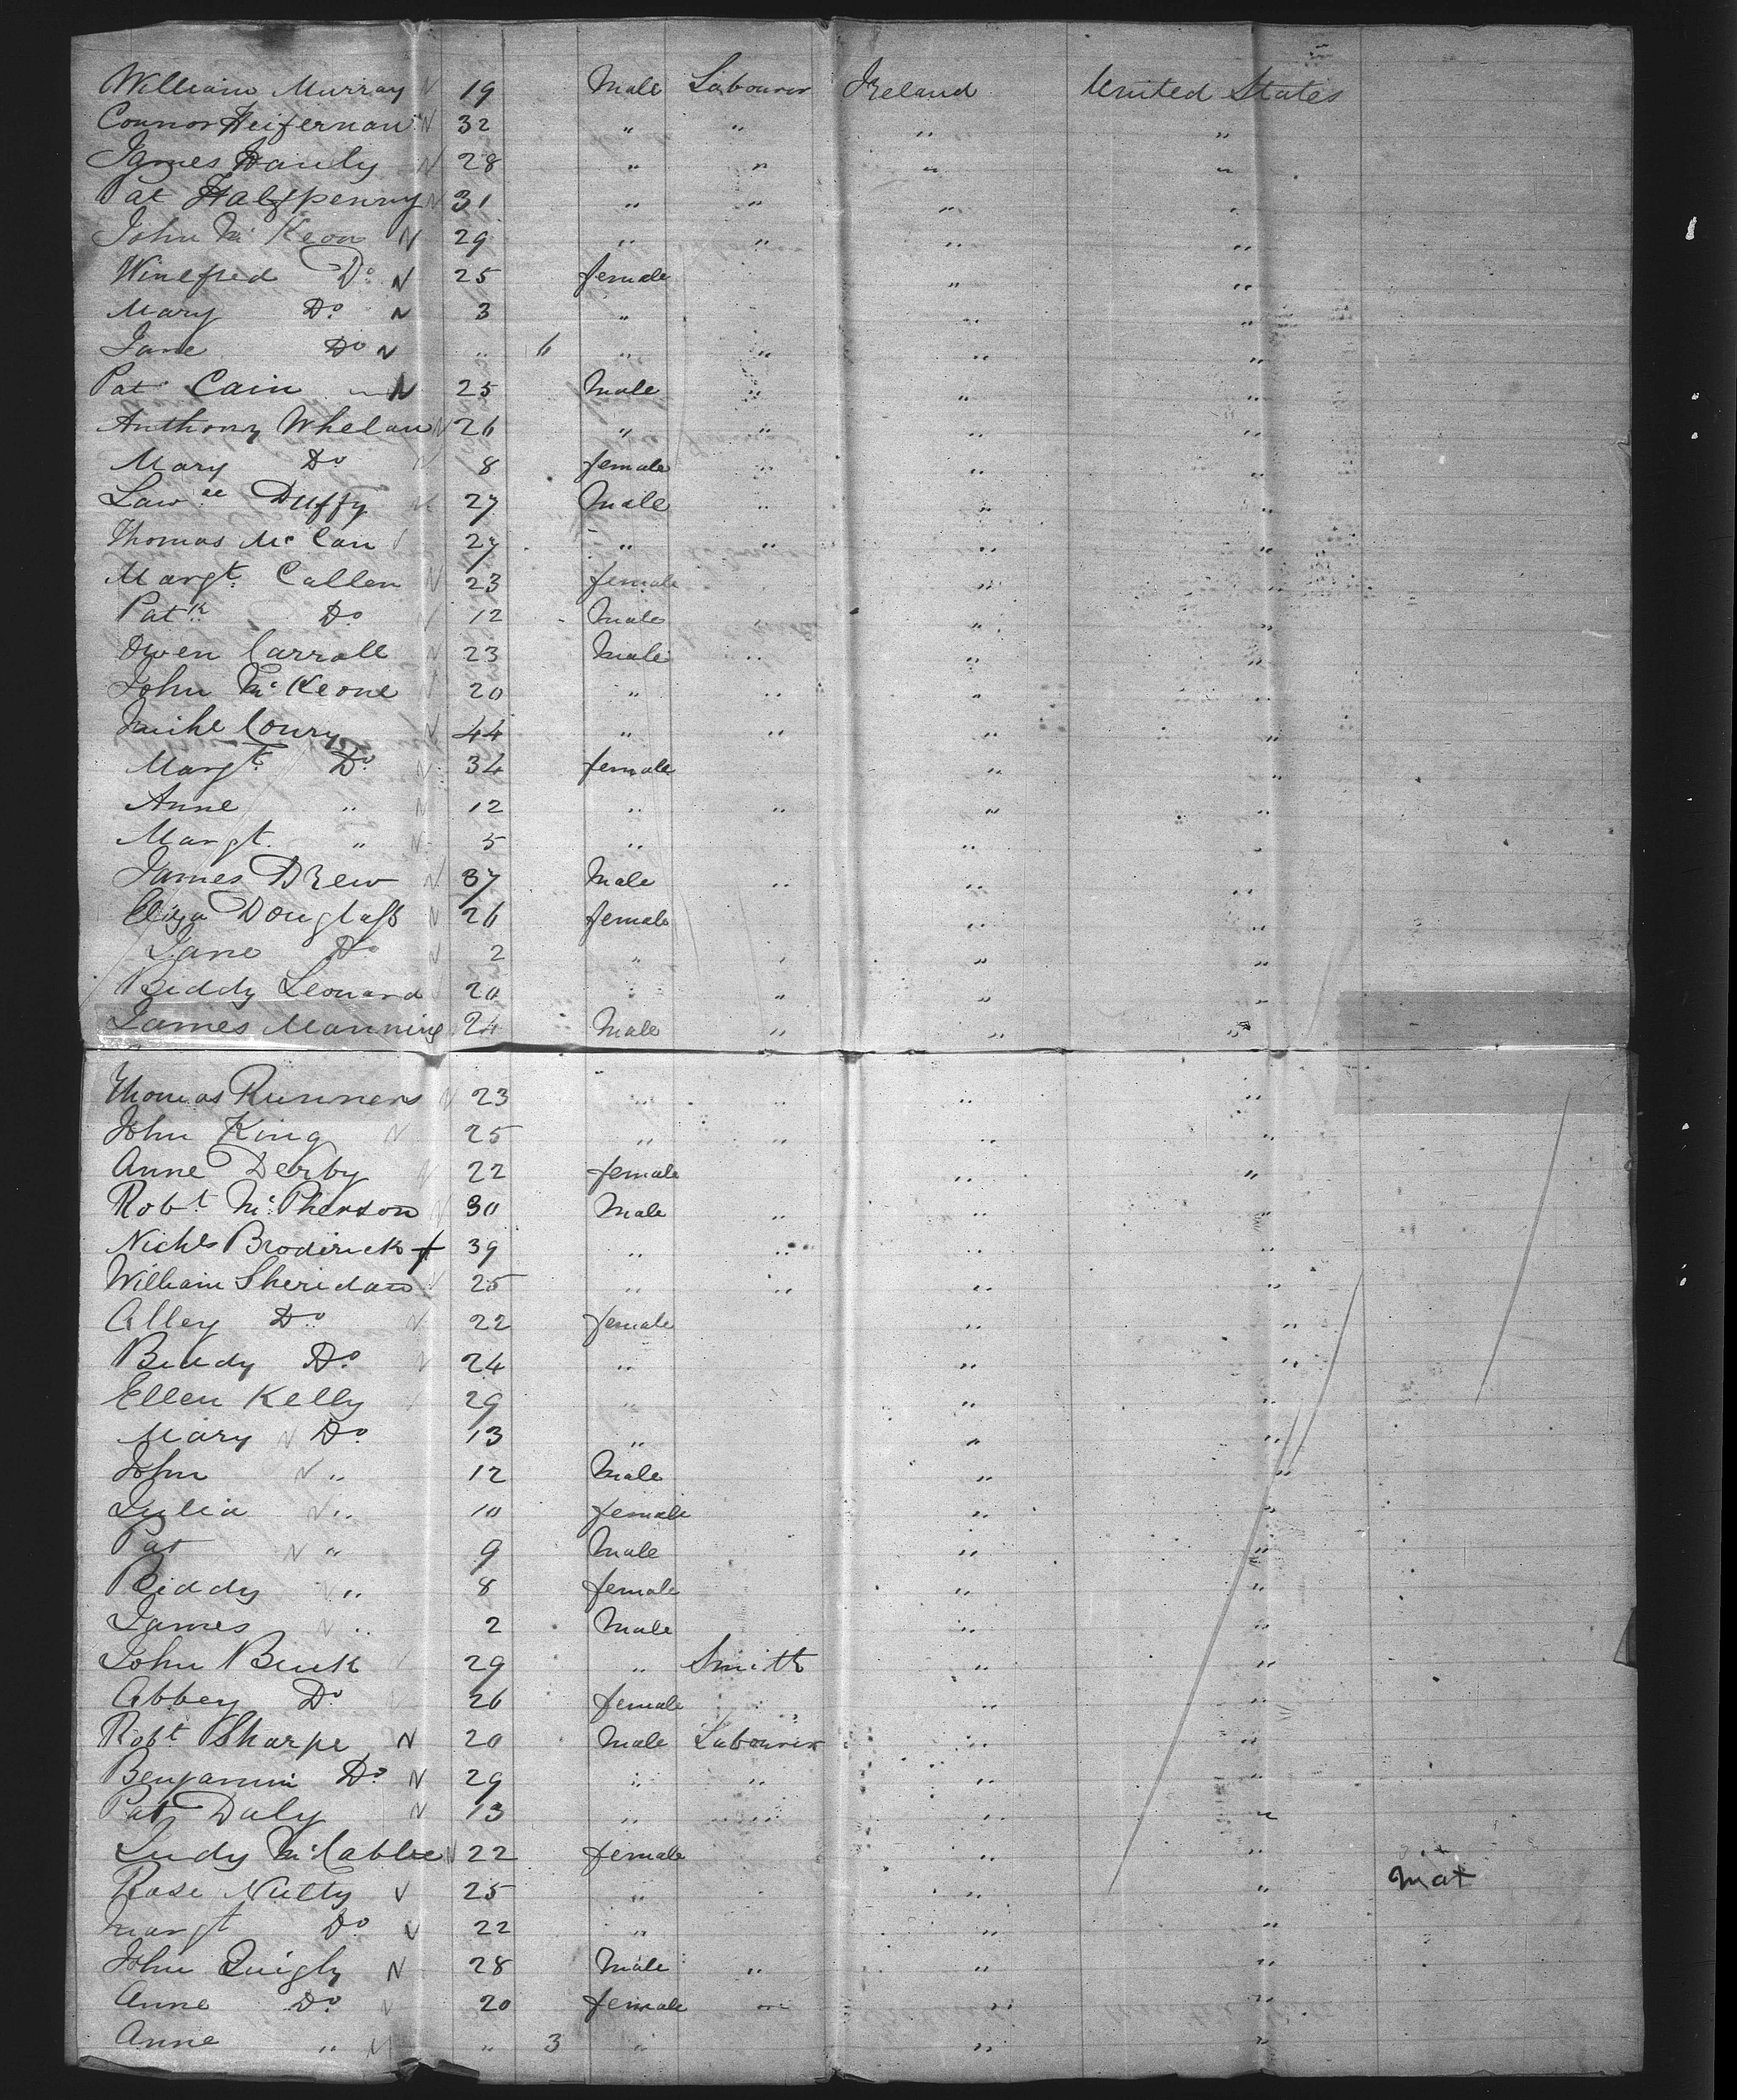 William Murray N 19 Male Labourer Ireland United States
Connor Heifernan N 32 " " " "
James Hanly N 28 " " " "
Pat Halfpenny N 31 " " " "
John Mc Keon N 29 " " " "
Winefred Do N 25 female " "
Mary Do N 3 " " "
Jane Do N " 6 " " " "
Pat Cain N 25 Male " " "
Anthony Whelan N 26 " " " "
Mary Do N 8 female " " "
Lawce Duffy N 27 Male " " "
Thomas Mc Can 27 " " " "
Margt Callen N 23 female " "
Patk Do N 12 Male " " "
Owen Carroll N 23 Male " " "
John Mc Keone N 20 " " " "
Michl Coury N 44 " " " "
Margt Do N 34 female " "
Anne " N 12 " " " "
Margt " N 5 " " "
James Drew N 37 Male " " "
Eliza Douglass N 26 female " "
Jane Do N 2 " " " "
Biddy Leonard 20 " " " "
James Manning 24 Male " " "
Thomas Runners N 23 " " " "
John King N 25 " " " "
Anne Derby N 22 female " "
Robt Mc Pherson N 30 Male " " "
Nichls Broderick + 39 " " " "
William Sheridan N 25 " " " "
Alley Do N 22 female " "
Biddy Do N 24 " " "
Ellen Kelly 29 " " "
Mary N Do 13 " " "
John N " 12 Male " "
Julia N " 10 female " "
Pat N " 9 Male " "
Biddy N " 8 female " "
James N " 2 Male " "
John Buck 29 " Smith " "
Abbey Do 26 female " " "
Robt Sharpe N 20 Male Labourer " "
Benjamin Do N 29 " " " "
Pat Daly N 13 " " " "
Judy Mc Cable N 22 female " "
Rose Nulty N 25 " " " Mat
Margt Do N 22 " " "
John Quigly N 28 Male " " "
Anne Do N 20 female " " "
Anne " N " 3 " " "